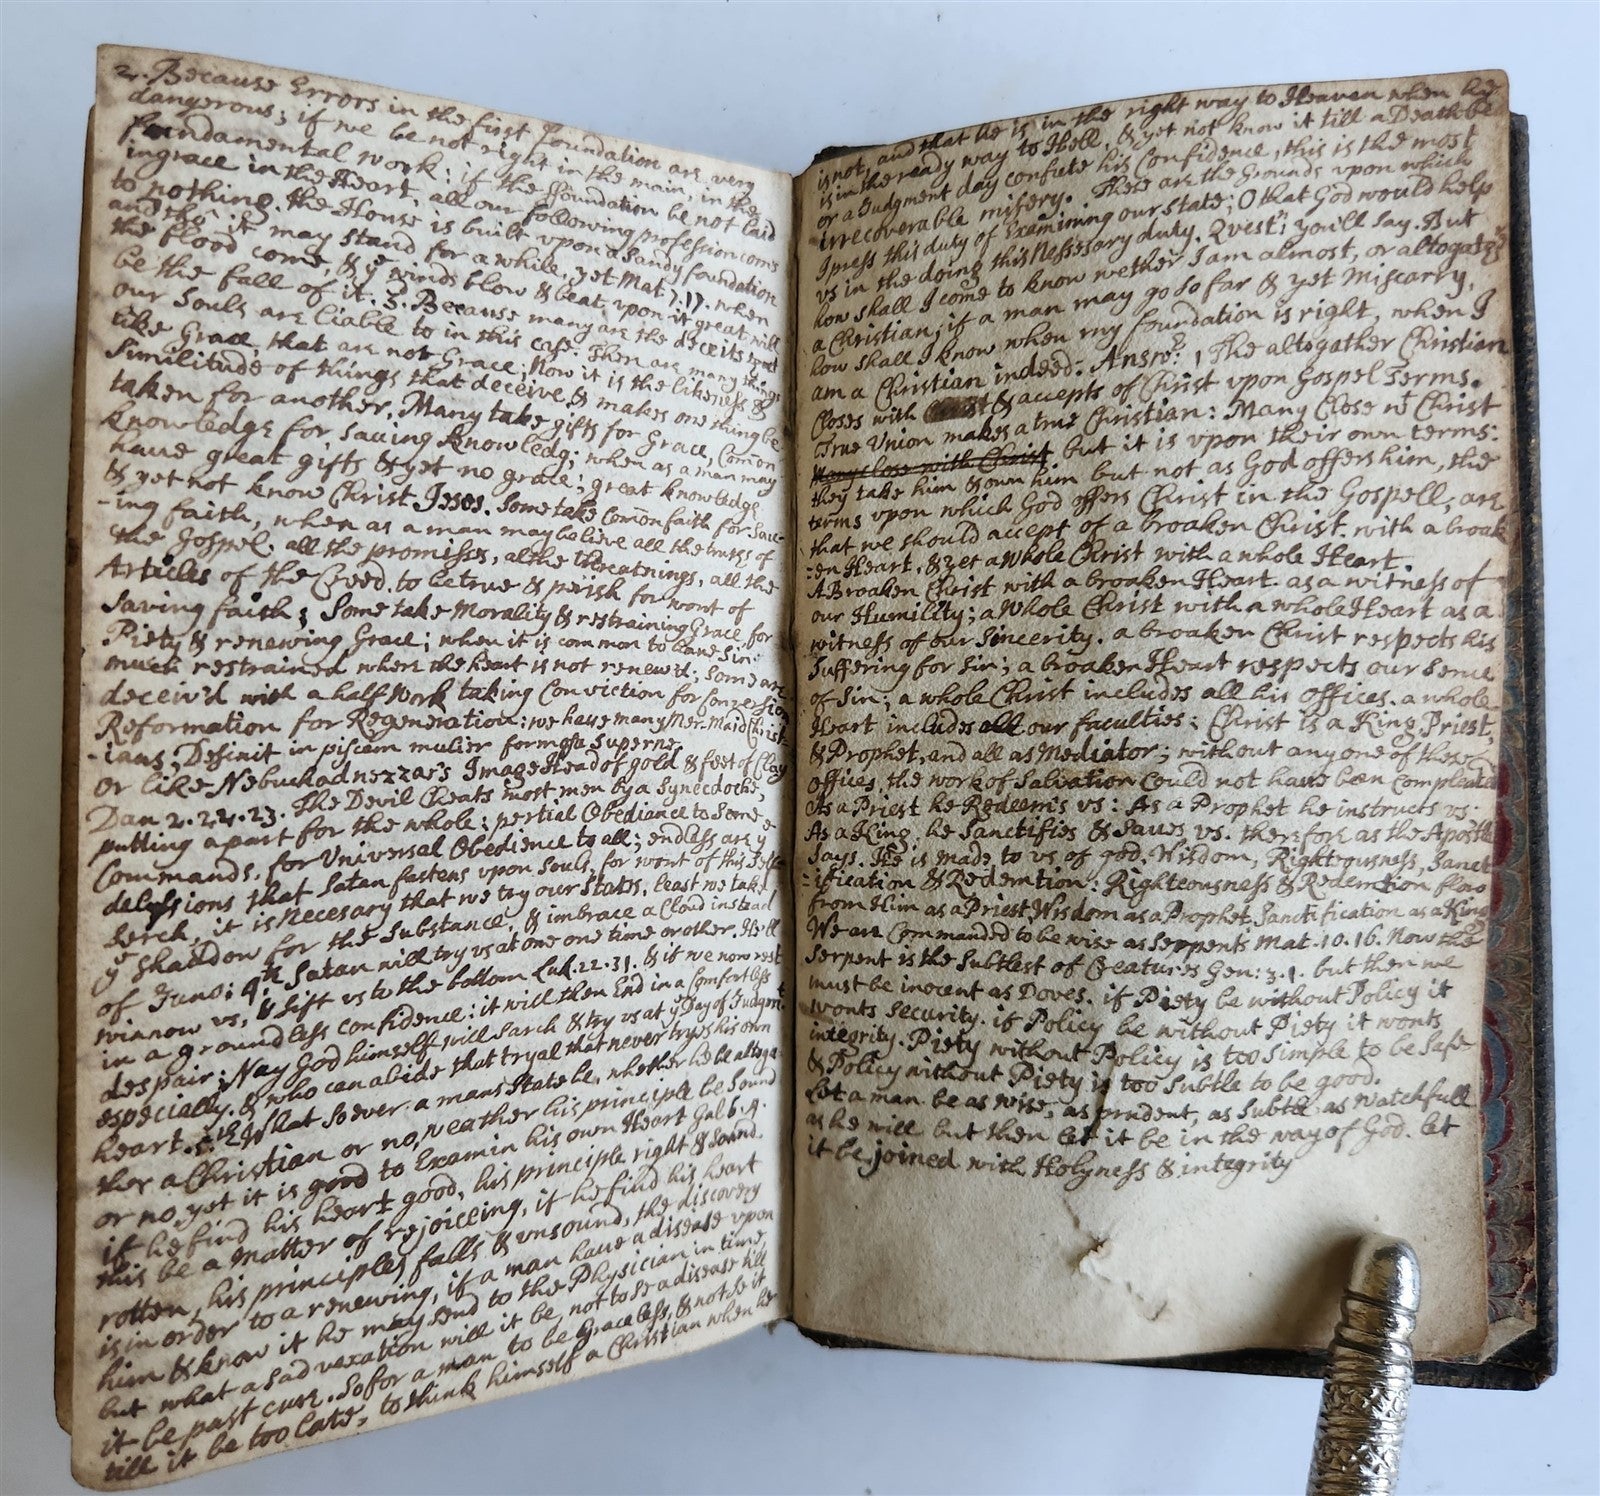 2. Because Errors in the first foundation are very
dangerous; if we be not right in the main, in the
fundamental work: if the foundation be not laid
in grace in the Heart, all our following profession coms
to nothing. the House is built upon a Sandy foundation
and tho' it may stand for a while, yet Mat 7.17. when
the flood come, & ye winds blow & beat upon it great will
be the fall of it. 3. Because many are the deceits yt
our Souls are liable to in this case. There are many things
like Grace, that are not Grace. Now it is the likeness &
Similitude of things that deceive, & makes one thing be
taken for another. Many take gifts for Grace, Common
knowledge for Saving Knowledg; when as a man may
have great gifts & yet no grace; great knowledge
& yet not know Christ Jesos. Some take Common faith for Sav-
-ing faith, when as a man may believe all the truths of
the Gospel. all the promisses, al the threatnings, all the
Articles of the Creed. to be true & perish for wont of
Saving faith; Some take Morality & restraining Grace for
Piety & renewing Grace; when it is common to have Sin
much restrained when the heart is not renew'd; Some are
deceiv'd with a half Work taking Conviction for Conversion
Reformation for Regeneration: we have many Mer-Maid Christ-
-ians, Desinit in piscem mulier formosa superne
or like Nebuchadnezzar's Image Head of gold & feet of Clay
Dan 2.22.23. The Devil Cheats most men by a Synecdoche,
putting a part for the whole: pertial Obediance to Some
Commands, for Universal Obedience to all; endless are ye
delussions that Satan fastens upon Souls, for wont of this Self
Serch, it is Necesary that we try our States, least we take
ye shaddow for the Substance, & imbrace a Cloud instead
of Juno; 4th Satan will try us at one one time or other. He'll
winnow us, & Sift us to the bottom Luk.22.31. & if we now rest
in a groundless confidence: it will then End in a Comfortless
despair; Nay God himself will Sarch & try us at ye Day of Judgmt
especially. & who can abide that tryal that never tryes his own
heart. 5th What Soever a mans State be, whether he be altoga-
ther a Christian or no, weather his principle be Sound
or no, yet it is good to Examin his own Heart Gal 6.4.
if he find his heart good, his principle right & Sound.
this be a matter of rejoicing, if he find his heart
rotten, his principles falls & unsound, the discovery
is in order to a renewing, if a man have a disease upon
him & know it he may send to the Physician in time
but what a Sad vexation will it be, not to Se a disease till
it be past cure. So for a man to be Graceless, & not Se it
till it be too late, to think himself a Christian when he
is not, and that He is in the right way to Heaven when he
is in the ready way to Hell, & yet not know it till a Death be
or a Judgment day confute his Confidence, this is the most
irrecoverable misery. These are the Grounds upon which
I press this duty of Examining our State: O that God would help
us in the doing this Nessessary duty. Quest: you'll Say. But
how shall I come to know wether I am almost, or altogather
a Christian, if a man may go So far & yet Miscarry,
how shall I know when my foundation is right, when I
am a Christian indeed: Answr: 1 The altogather Christian
Closes with & accepts of Christ upon Gospel Terms.
True Union makes a true Christian: Many Close wt Christ
Many close with Christ but it is upon their own terms:
they take him & own him but not as God offers him, the
terms upon which God offers Christ in the Gospell, are
that we should accept of a broaken Christ. with a broak
-en Heart, & yet a Whole Christ with a whole Heart.
A Broaken Christ with a broaken Heart. as a witness of
our Humility; a Whole Christ with a whole Heart as a
witness of our Sincerity. a broaken Christ respects his
Suffering for Sin; a broaken Heart respects our Sence
of Sin; a whole Christ includes all his offices. a whole
Heart includes all our faculties: Christ is a King, Priest,
& Prophet, and all as Mediator; without any one of these
offices, the work of Salvation Could not have been Compleated
As a Priest he Redeem's us: As a Prophet he instructs us.
As a King. he Sanctifies & Saves us. therfore as the Apostle
Says. He is made to us of god. Wisdom, Righteousness, Sanct
-ification & Redemtion: Righteousness & Redemtion flow
from Him as a Priest, Wisdom as a Prophet. Sanctification as a King
We are Commanded to be wise as Serppents Mat.10.16. Now the
Serpent is the Subtlest of Creatures Gen: 3.1. but then we
must be inocent as Doves. if Piety be without Policy it
wonts Security. if Policy be without Piety it wonts
integrity. Piety without Policy is too Simple to be Safe
& Policy without Piety is too Subtle to be good.
Let a man be as wise, as prudent, as Subtle as watchfull
as he will but then let it be in the way of God. let
it be joined with Holyness & integrity